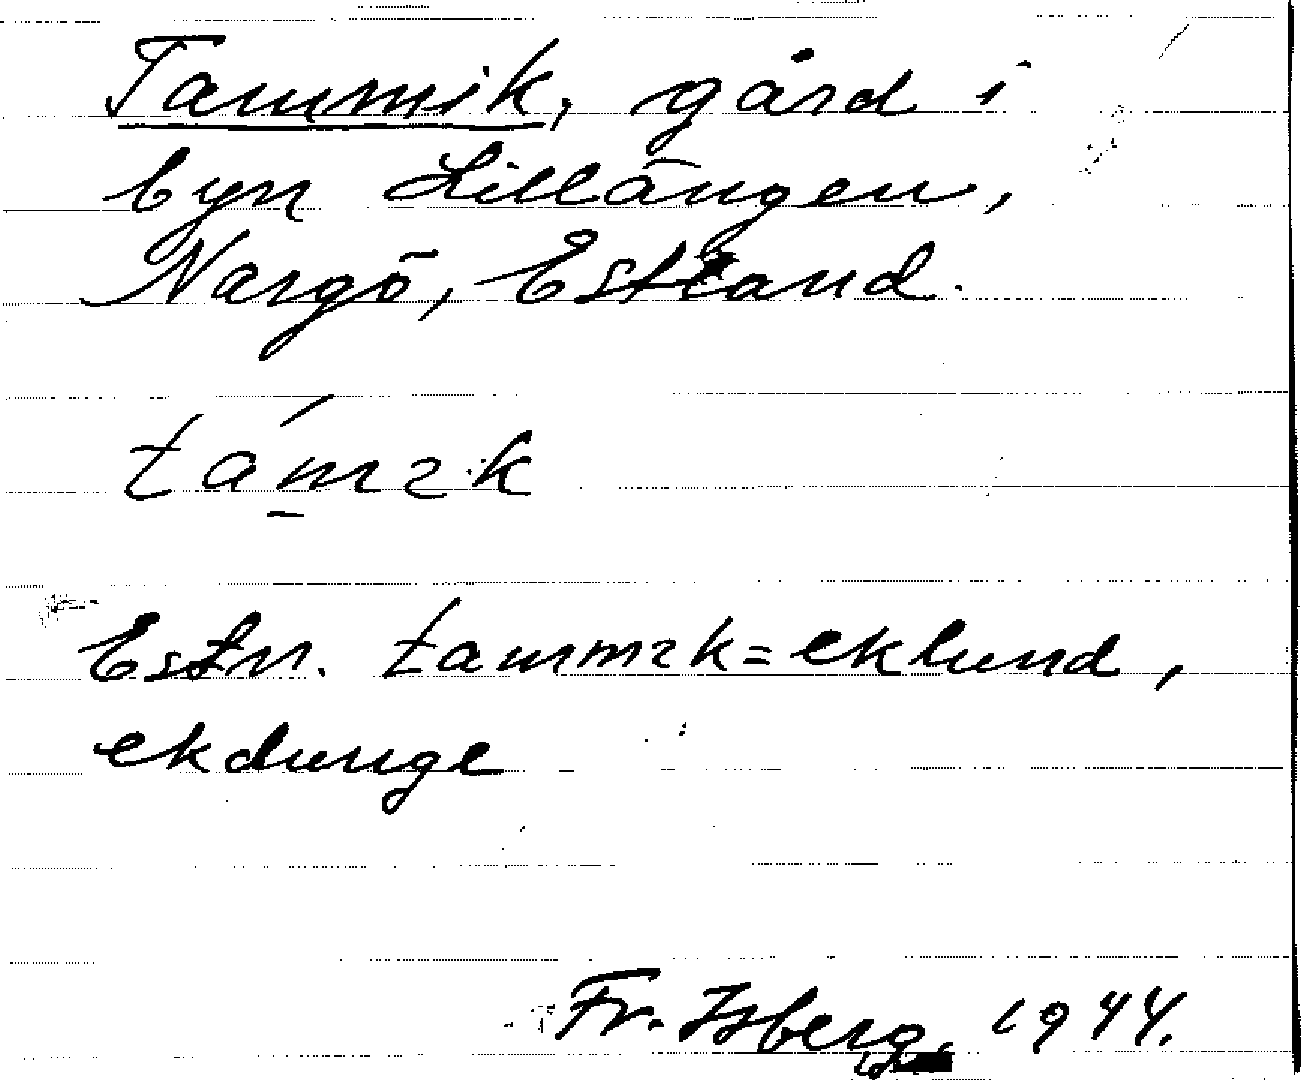 Tammik, gård i
byn Lillängen,
Nargö, Estland.
támık
Estn. tammık = eklund,
ekdunge
Fr. Isberg 1944.